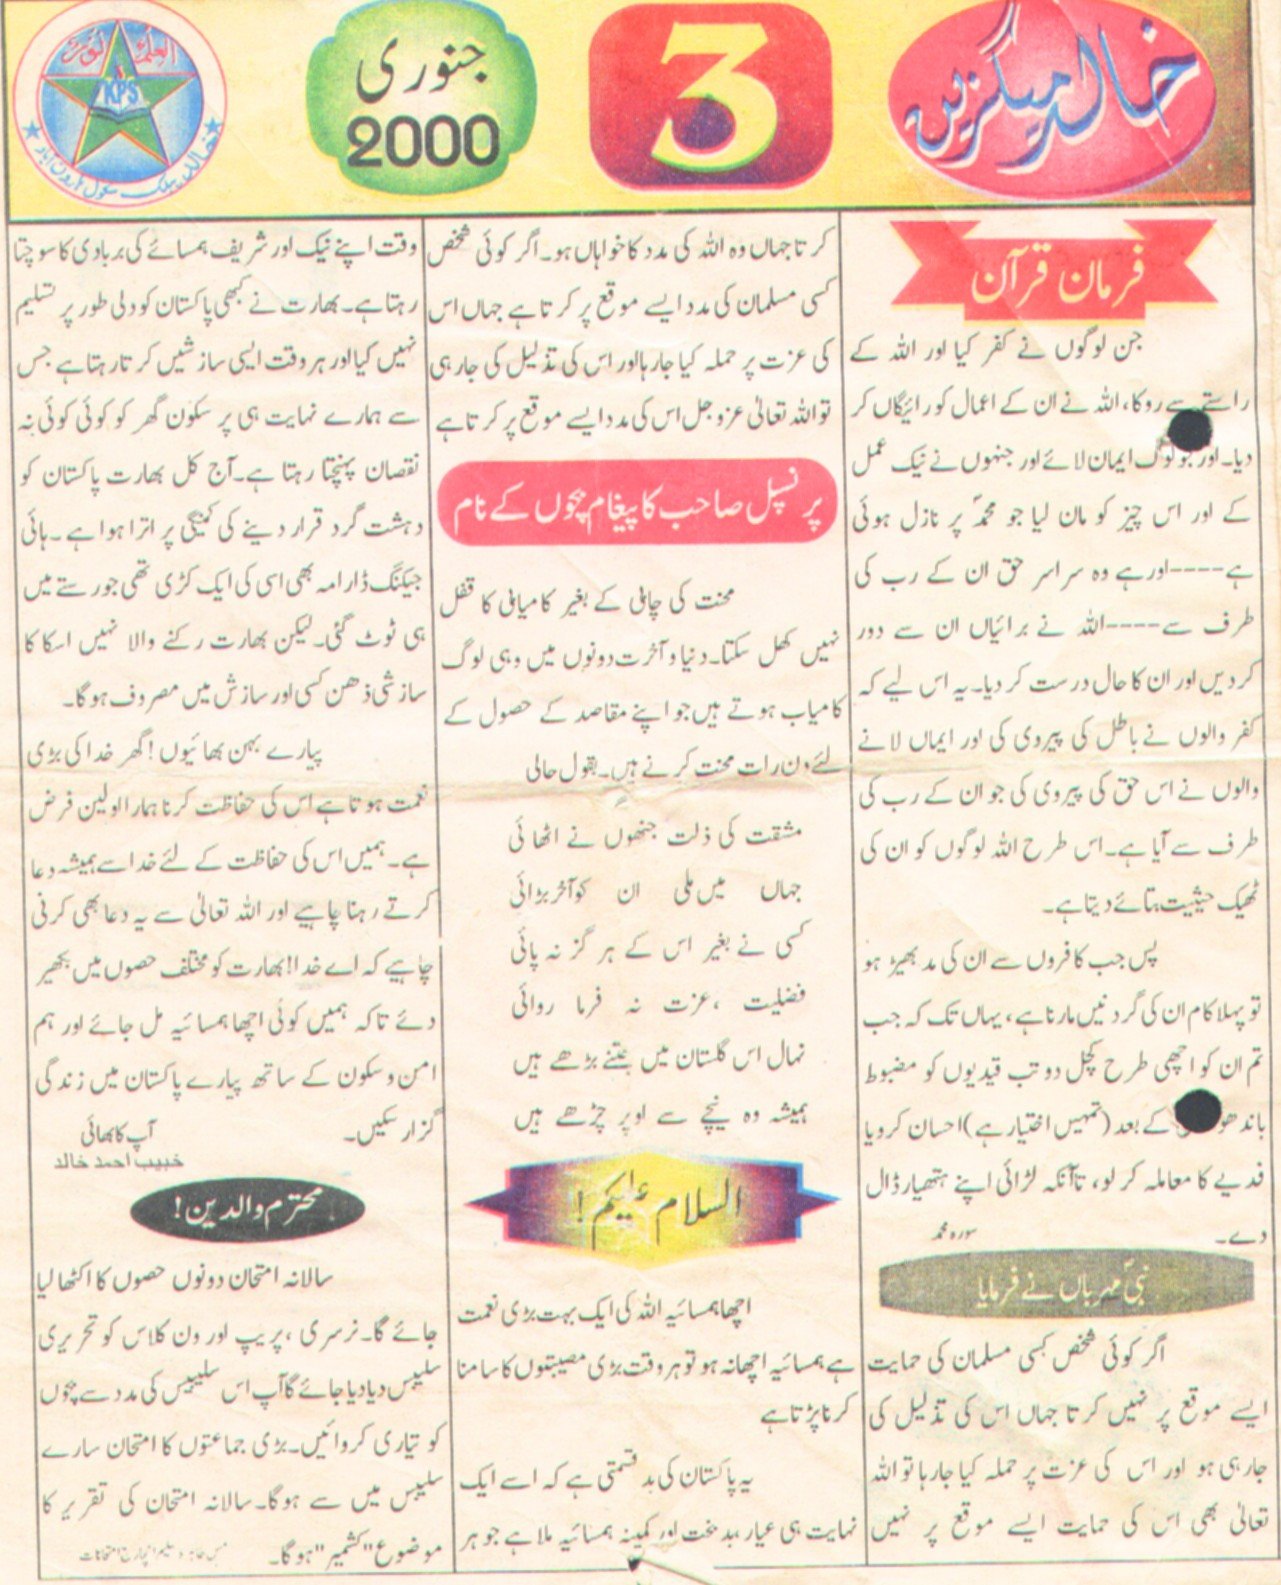 خالد میگزین
3
جنوری
2000
KPS
خالد پبلک سکول ہارون آباد
فرمان قرآن
جن لوگوں نے کفر کیا اور اللہ کے
راستے سے روکا، اللہ نے ان کے اعمال کو رائیگاں کر
دیا۔ اور جو لوگ ایمان لائے اور جنہوں نے نیک عمل
کے اور اس چیز کو مان لیا جو محمدؐ پر نازل ہوئی
ہے----اور ہے وہ سراسر حق ان کے رب کی
طرف سے----اللہ نے برائیاں ان سے دور
کر دیں اور ان کا حال درست کر دیا۔ یہ اس لیے کہ
کفر والوں نے باطل کی پیروی کی اور ایماں لانے
والوں نے اس حق کی پیروی کی جو ان کے رب کی
طرف سے آیا ہے۔ اس طرح اللہ لوگوں کو ان کی
ٹھیک حیثیت بتائے دیتا ہے۔
پس جب کافروں سے ان کی مدبھیڑ ہو
تو پہلا کام ان کی گردنیں مارنا ہے، یہاں تک کہ جب
تم ان کو اچھی طرح کچل دو تب قیدیوں کو مضبوط
باندھو کے بعد (تمہیں اختیار ہے) احسان کرو یا
فدیے کا معاملہ کر لو، تاآنکہ لڑائی اپنے ہتھیار ڈال
دے۔ سورہ محمد
نبیؐ مہرباں نے فرمایا
اگر کوئی شخص کسی مسلمان کی حمایت
ایسے موقع پر نہیں کرتا جہاں اس کی تذلیل کی
جا رہی ہو اور اس کی عزت پر حملہ کیا جا رہا تو اللہ
تعالٰی بھی اس کی حمایت ایسے موقع پر نہیں
کرتا جہاں وہ اللہ کی مدد کا خواہاں ہو۔ اگر کوئی شخص
کسی مسلمان کی مدد ایسے موقع پر کرتا ہے جہاں اس
کی عزت پر حملہ کیا جا رہا اور اس کی تذلیل کی جا رہی
تو اللہ تعالٰی عزوجل اس کی مدد ایسے موقع پر کرتا ہے
پرنسپل صاحب کا پیغام بچوں کے نام
محنت کی چابی کے بغیر کامیابی کا قفل
نہیں کھل سکتا۔ دنیا و آخرت دونوں میں وہی لوگ
کامیاب ہوتے ہیں جو اپنے مقاصد کے حصول کے
لئے دن رات محنت کرنے ہیں۔ بقول حالی
مشقت کی ذلت جنھوں نے اٹھائی
جہاں میں ملی ان کو آخر بڑائی
کسی نے بغیر اس کے ہر گز نہ پائی
فضلیت ،عزت نہ فرما روائی
نہال اس گلستان میں جتنے بڑھے ہیں
ہمیشہ وہ نیچے سے اوپر چڑھے ہیں
السلام علیکم!
اچھا ہمسائیہ اللہ کی ایک بہت بڑی نعمت
ہے ہمسائیہ اچھا نہ ہو تو ہر وقت بڑی مصیبتوں کا سامنا
کرنا پڑتا ہے
یہ پاکستان کی بد قسمتی ہے کہ اسے ایک
نہایت ہی عیار، بدبخت اور کمینہ ہمسائیہ ملا ہے جو ہر
وقت اپنے نیک اور شریف ہمسائے کی بربادی کا سوچتا
رہتا ہے۔ بھارت نے کبھی پاکستان کو دلی طور پر تسلیم
نہیں کیا اور ہر وقت ایسی سازشیں کرتا رہتا ہے جس
سے ہمارے نہایت ہی پر سکون گھر کو کوئی کوئی نہ
نقصان پہنچتا رہتا ہے۔ آج کل بھارت پاکستان کو
دہشت گرد قرار دینے کی کمینگی پر اترا ہوا ہے۔ ہائی
جیکنگ ڈارامہ بھی اسی کی ایک کڑی تھی جو رستے میں
ہی ٹوٹ گئی۔ لیکن بھارت رکنے والا نہیں اسکا کا
سازشی ذھن کسی اور سازش میں مصروف ہوگا۔
پیارے بہن بھائیوں! گھر خدا کی بڑی
نعمت ہوتا ہے اس کی حفاظت کرنا ہمارا اولین فرض
ہے۔ ہمیں اس کی حفاظت کے لئے خدا سے ہمیشہ دعا
کرتے رہنا چاہیے اور اللہ تعالٰی سے یہ دعا بھی کرنی
چاہیے کہ اے خدا! بھارت کو مختلف حصوں میں بکھیر
دئے تاکہ ہمیں کوئی اچھا ہمسائیہ مل جائے اور ہم
امن و سکون کے ساتھ پیارے پاکستان میں زندگی
گزار سکیں۔ آپ کا بھائی
خبیب احمد خالد
محترم والدین!
سالانہ امتحان دونوں حصوں کا اکٹھا لیا
جائے گا۔ نرسری ،پریپ اور ون کلاس کو تحریری
سلیبس دیا دیا جائے گا آپ اس سلیبس کی مدد سے بچوں
کو تیاری کروائیں۔ بڑی جماعتوں کا امتحان سارے
سلیبس میں سے ہوگا۔ سالانہ امتحان کی تقریر کا
موضوع "کشمیر" ہوگا۔ انچارج امتحانات